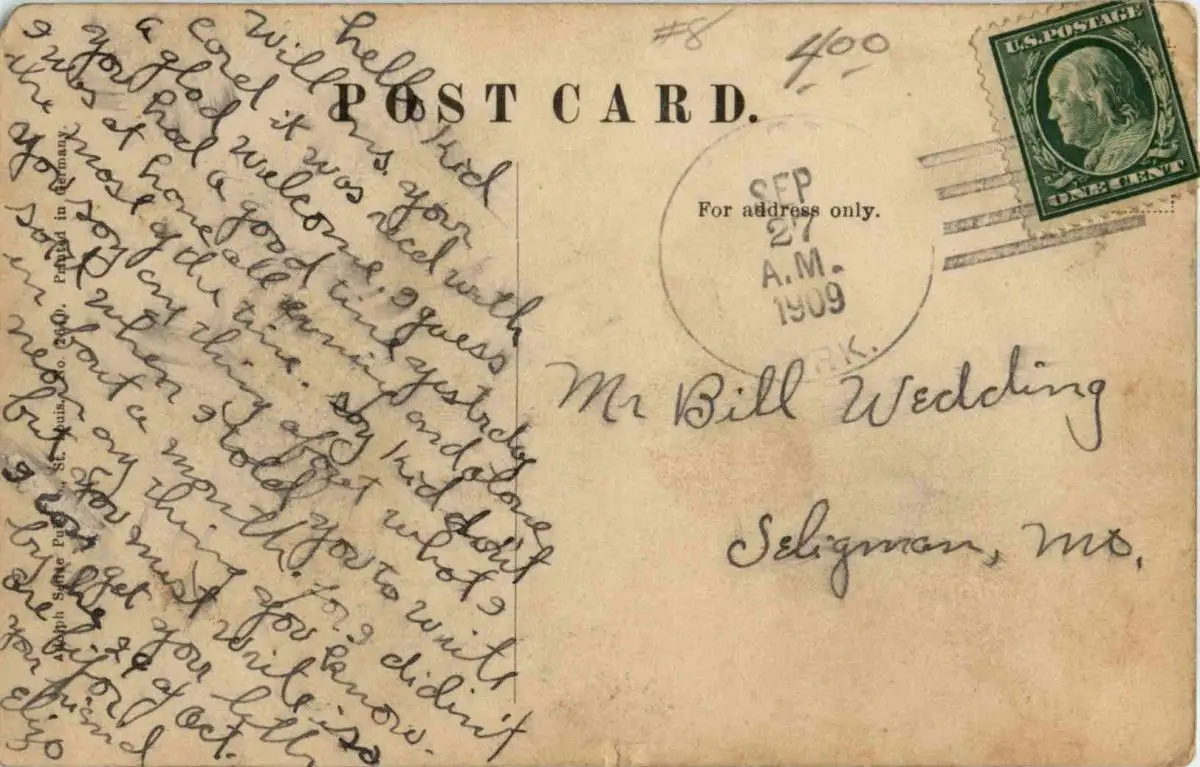 #8
4.00
U.S. POSTAGE
ONE CENT
POST CARD.
For address only.
SEP
27
A.M.
1909
RK.
Mr Bill Wedding
Seligman, Mo.
Printed in Germany.
St. Louis, Mo.
Adolph Selige Pub.
hello Kid
Will ans. your
card it was recd with
a glad welcome, I guess
you had a good time yesterday
I was at home all evening and alone
the most of the time. say Kid don't
you say any thing about what I
said when I told you to write
in about a month. for I didin't
mean any thing you know.
but you must write is so
I can get your letter
by the 29 of Oct.
are bifor
your friend
Eliza